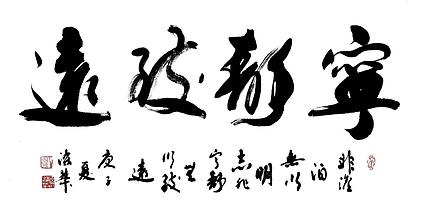 寧靜致遠
非澹
泊
無以
明
志非
寧靜
無
以致
遠
庚子
夏